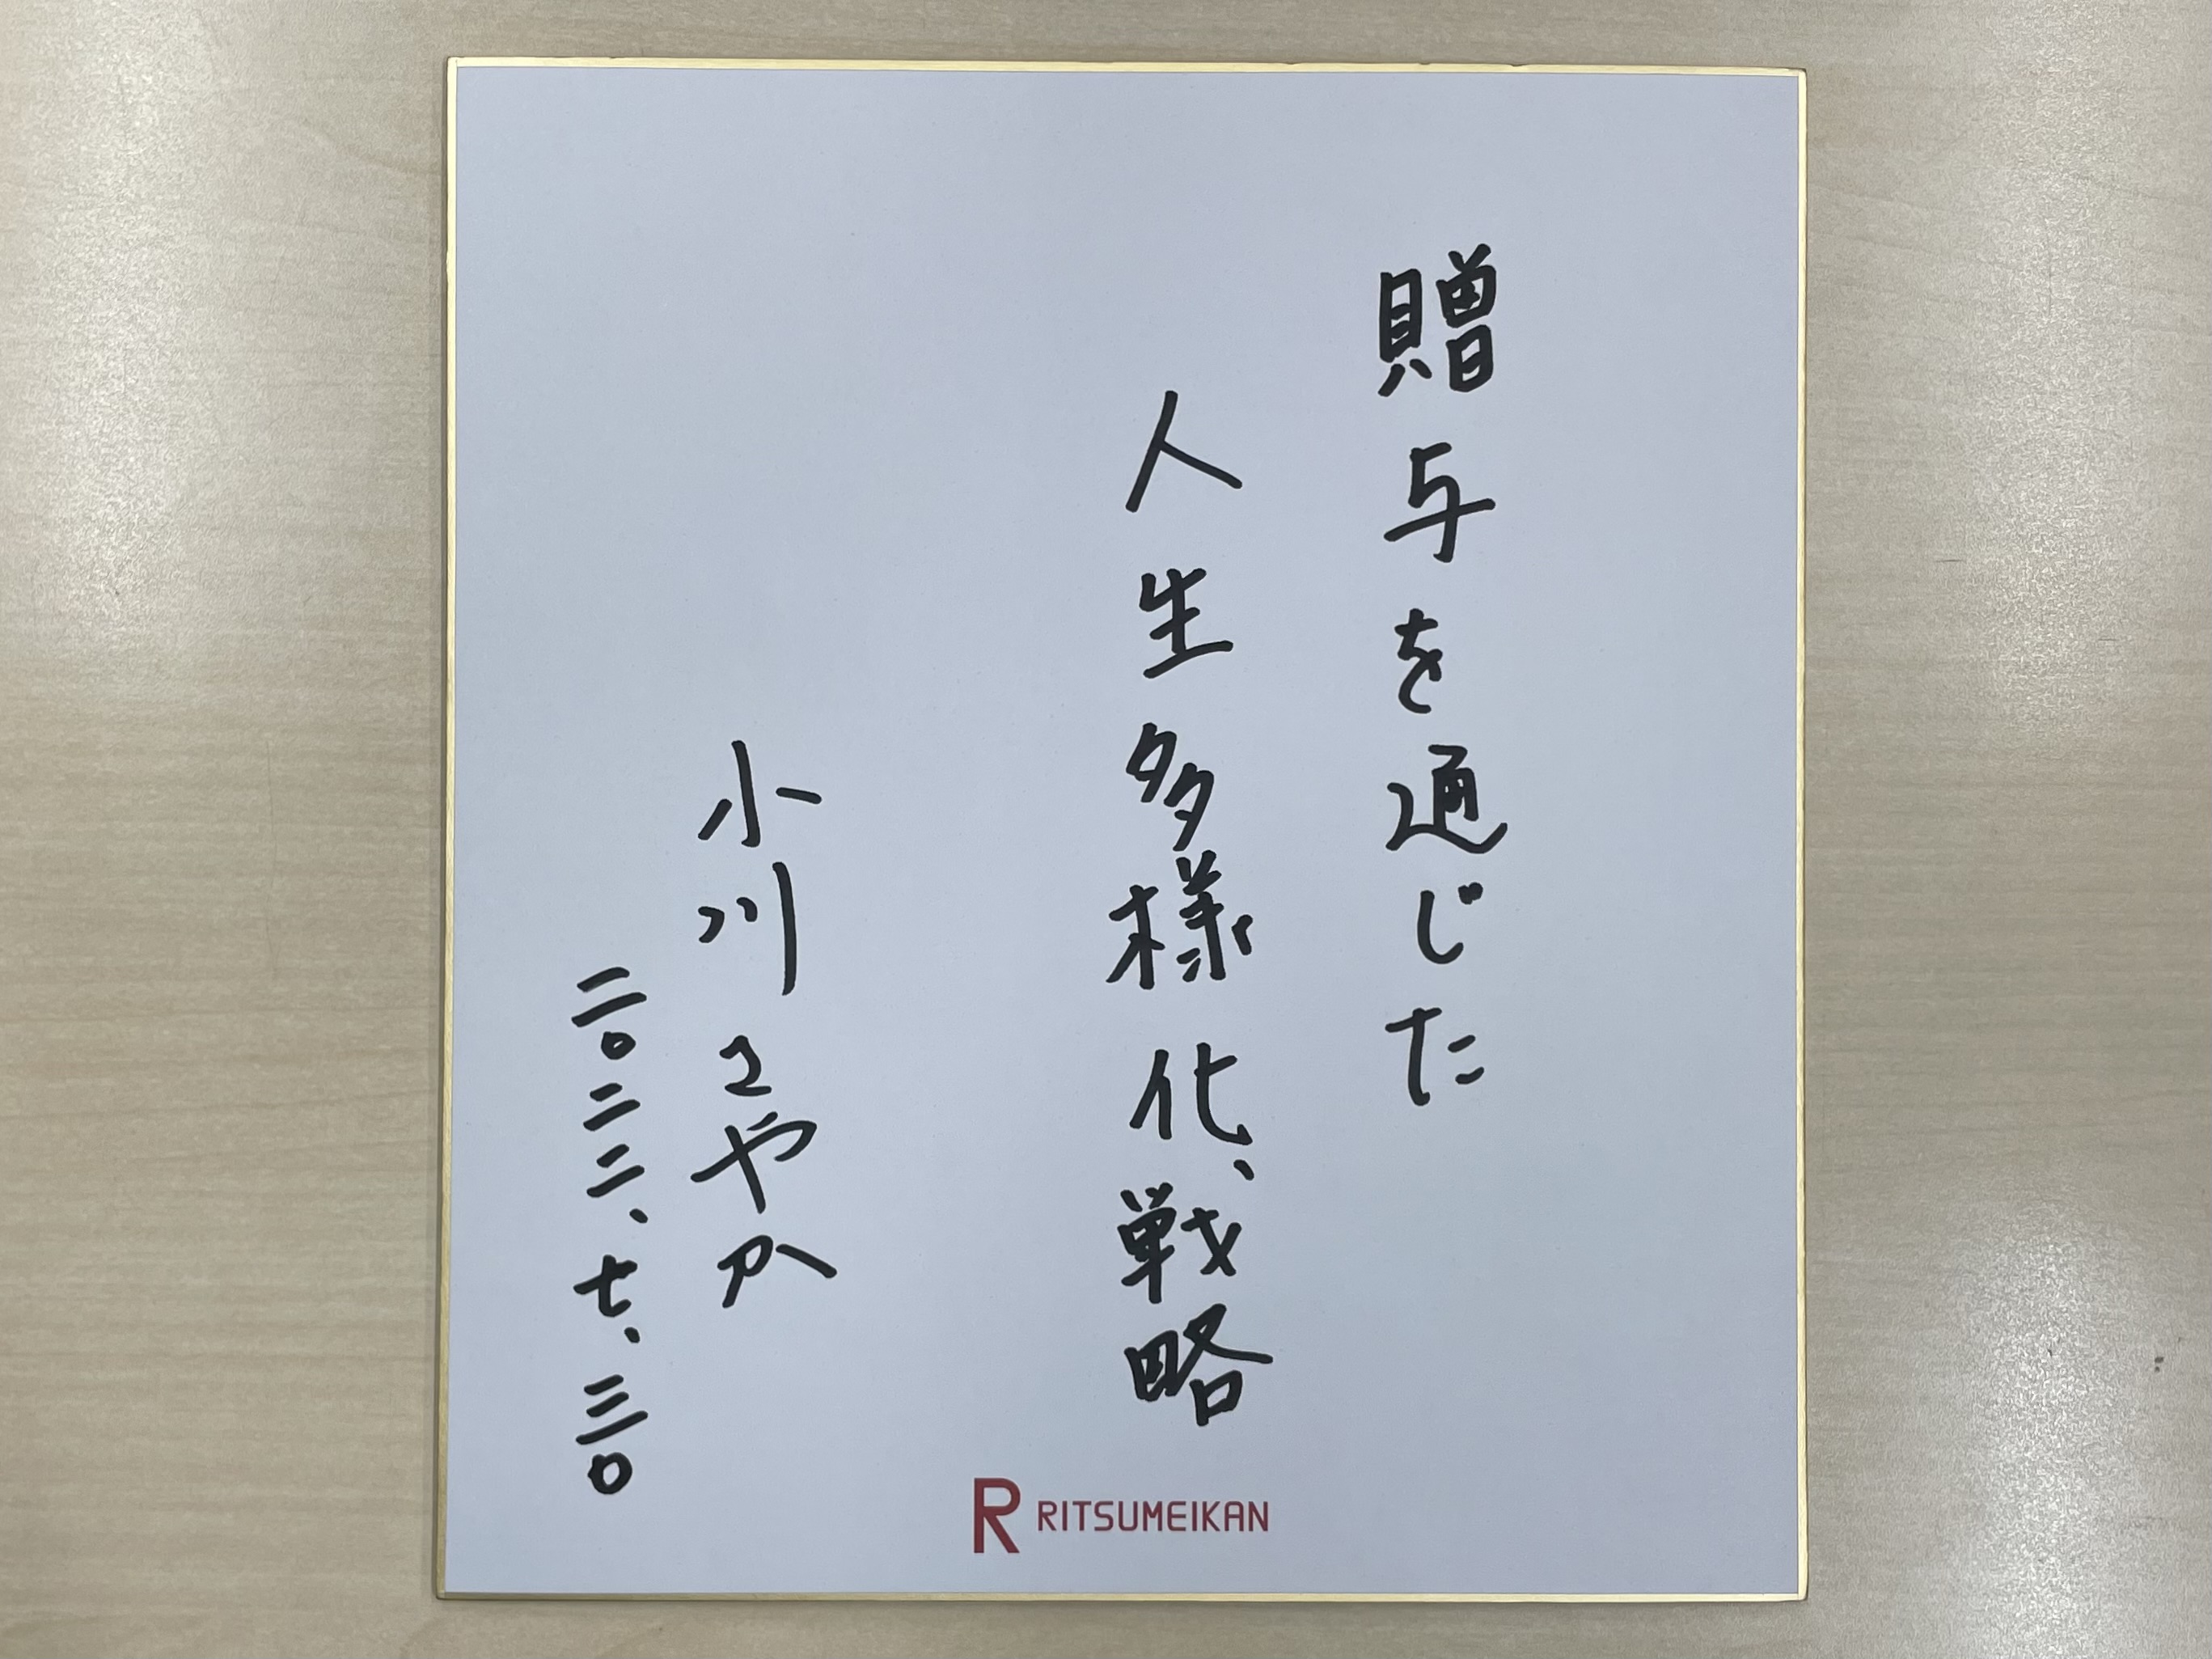 贈与を通じた
人生多様化、戦略
小川さやか
二〇二二、七、三〇
R RITSUMEIKAN